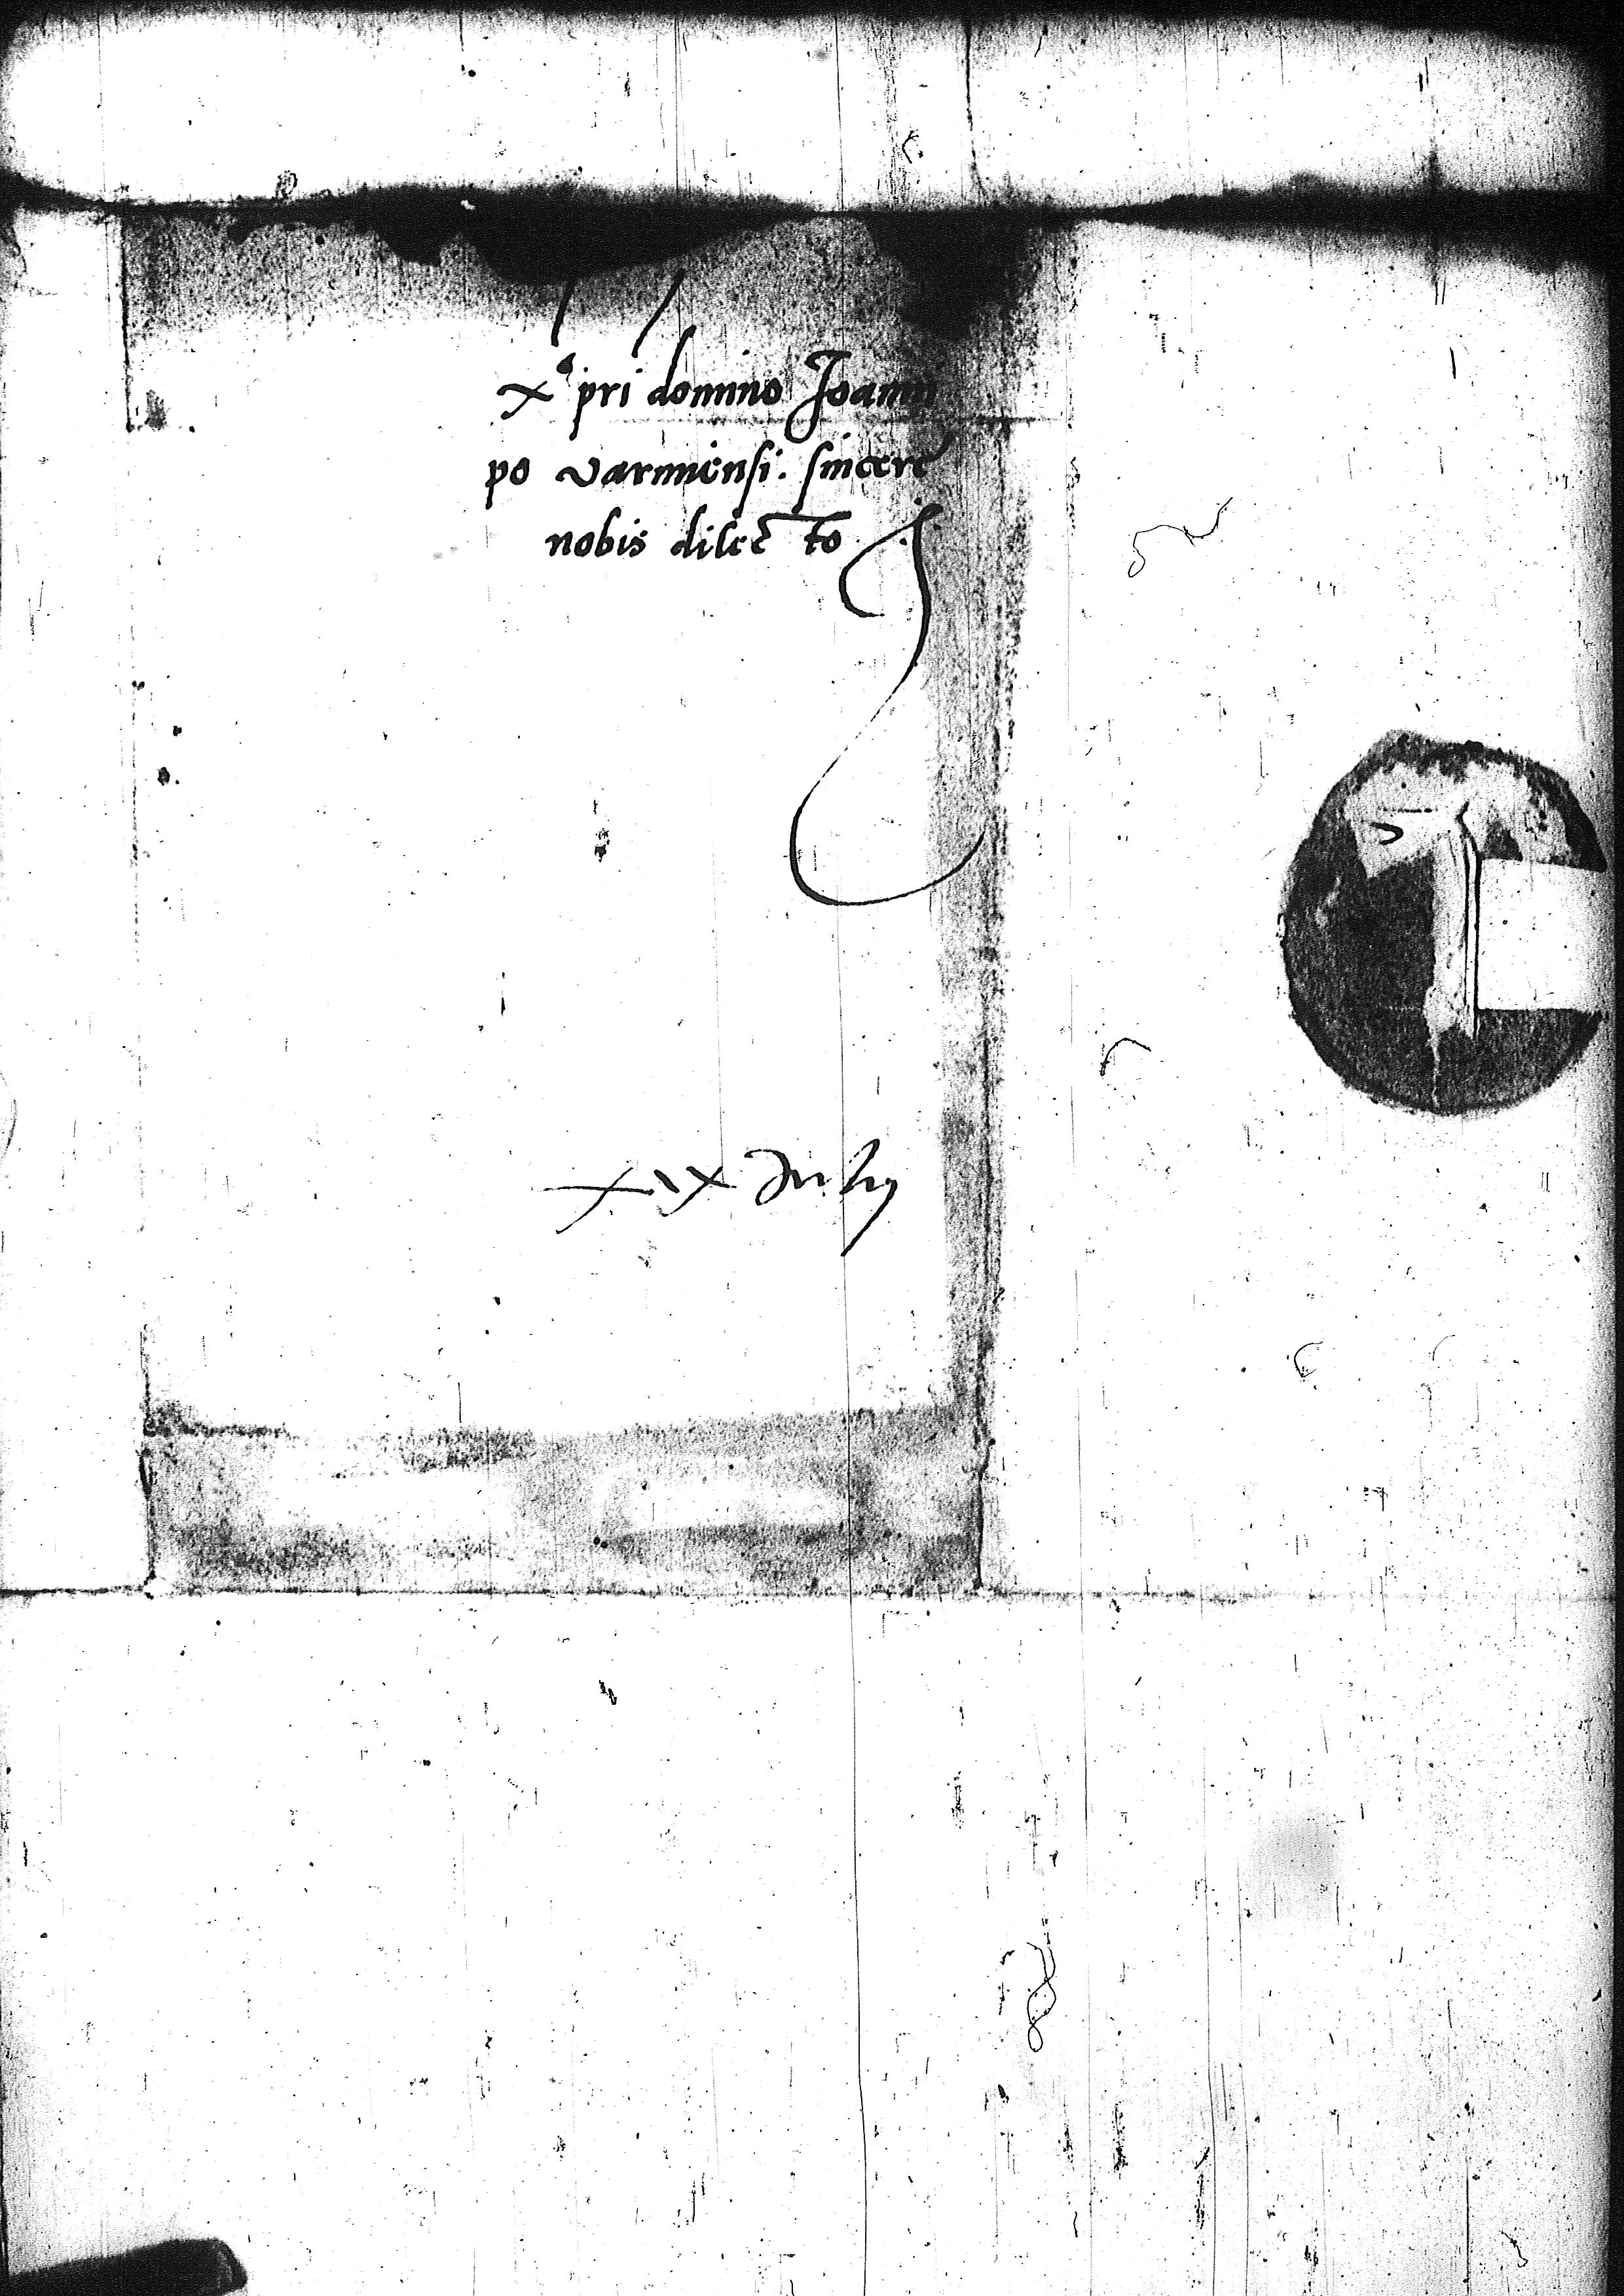 xº pri domino Joanni
po varmiensi. sincere
nobis dilecto
xix Julij